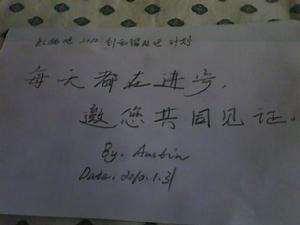 2010 计划
每天都在进步,
邀您共同见证.
By. Austin
Date. 2010.1.31